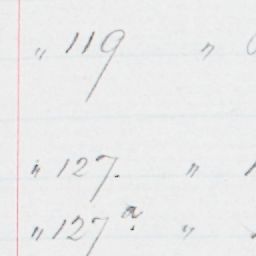 " 119 "
" 127. "
" 127a. "